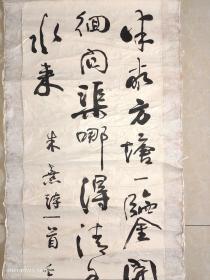 半亩方塘一鉴开
徊问渠哪得清
水来
朱熹诗一首